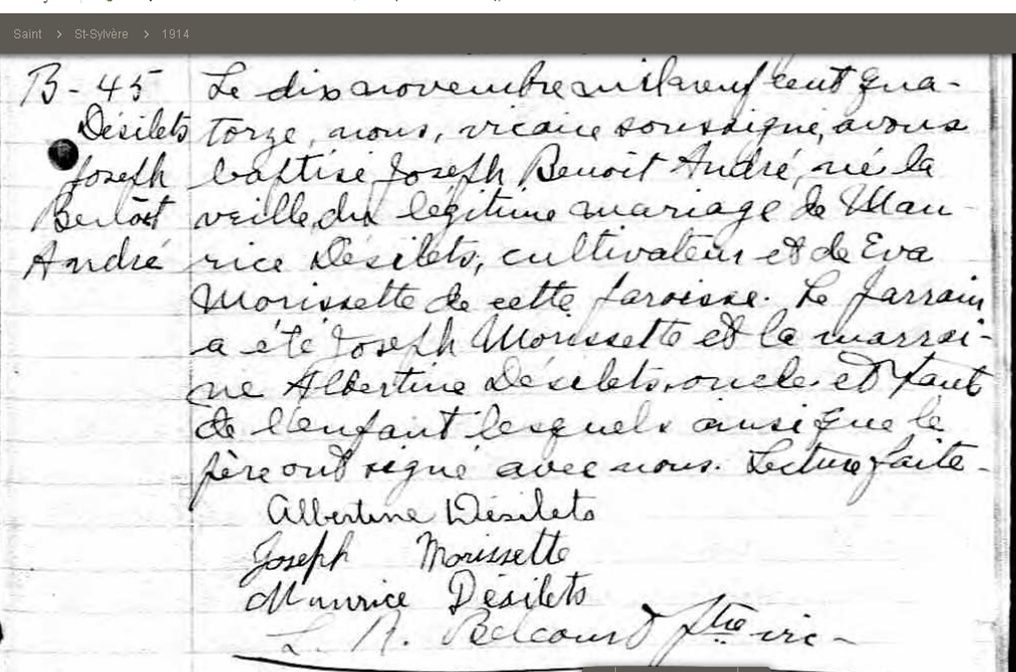 Saint > St-Sylvère > 1914
B-45
Désilets
Joseph
Benoit
André
Le dix novembre mil neuf cent qua-
torze, nous, vicaire soussigné, avons
baptisé Joseph Benoit André, né la
veille, du légitime mariage de Mau-
rice Désilets, cultivateur et de Eva
Morissette de cette paroisse. Le parrain
a été Joseph Morissette et la marrai-
ne Albertine Désilets, oncle et tante
de l'enfant lesquels ainsi que le
père ont signé avec nous. Lecture faite-
Albertine Désilets
Joseph Morissette
Maurice Désilets
L. A. Belcourt ptre vic-